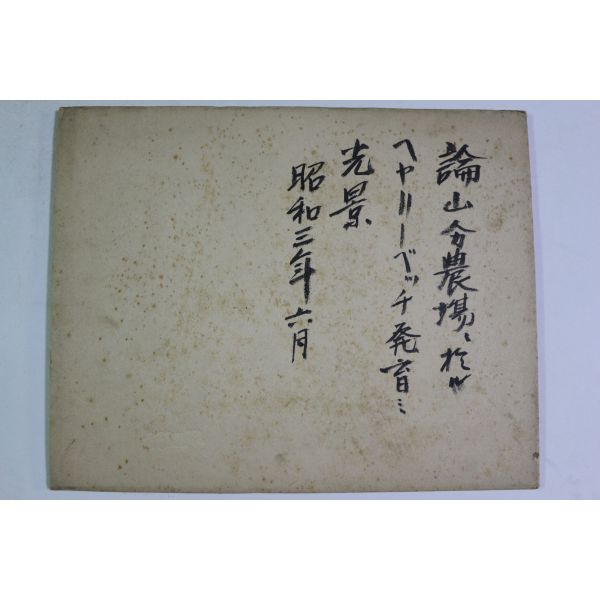 論山分農場ニ於ル
ヘヤリーベッチ発育
光景
昭和三年六月